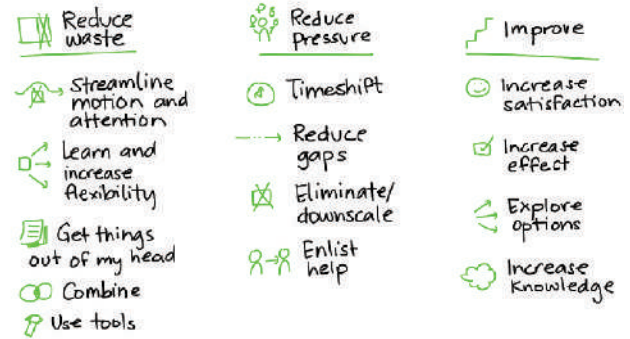 Reduce
waste
Streamline
motion and
attention
Learn and
increase
flexibility
Get things
out of my head
Combine
Use tools
Reduce
pressure
Timeshift
Reduce
gaps
Eliminate/
downscale
Enlist
help
Improve
Increase
satisfaction
Increase
effect
Explore
options
Increase
Knowledge